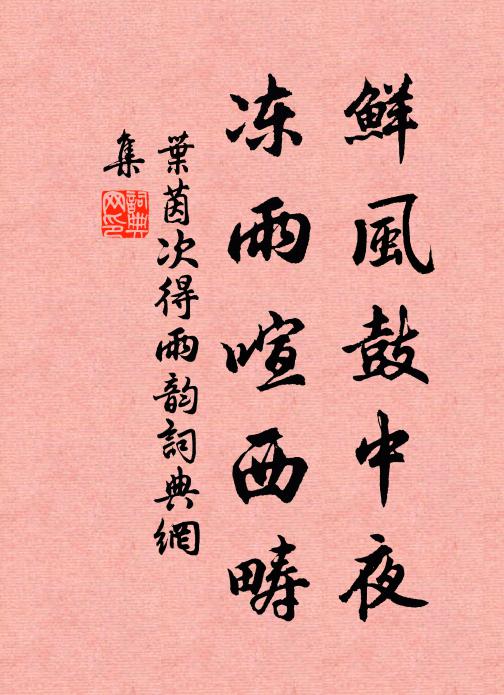 鮮風鼓中夜
冻雨喧西疇
葉茵次得雨韵詞典網
集
詞典網印